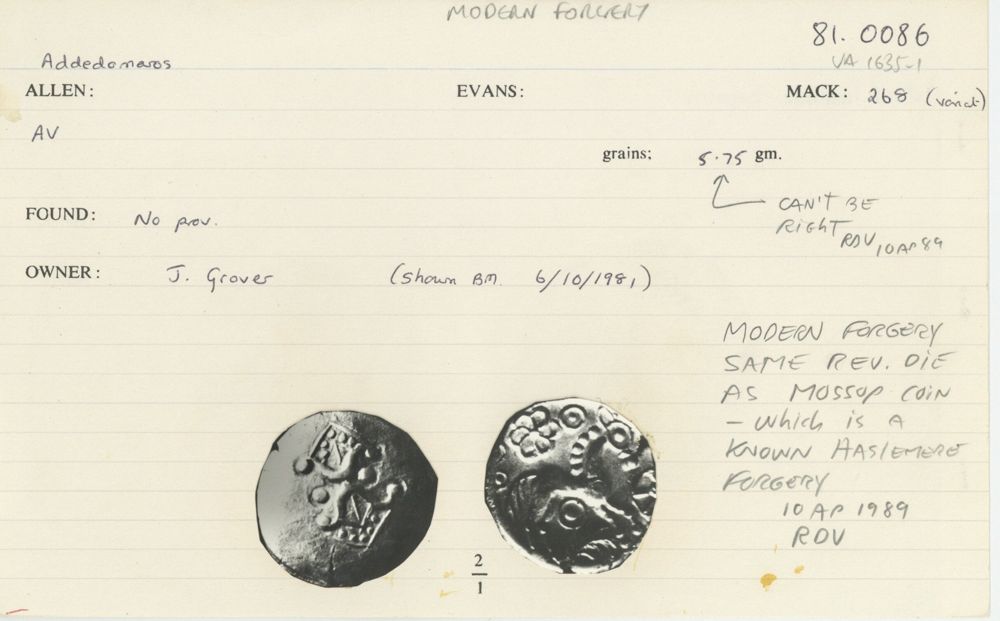 MODERN FORGERY
81. 0086
VA 1635-1
Addedomaros
ALLEN: EVANS: MACK: 268 (variant)
AV
grains: 5.75 gm.
CAN'T BE
RIGHT
RDV 10 AP 89
FOUND: No prov.
OWNER: J. Grover (Shown BM. 6/10/1981)
MODERN FORGERY
SAME REV. DIE
AS MOSSOP COIN
- WHICH IS A
KNOWN HASLEMERE
FORGERY
10 AP 1989
RDV
2
1